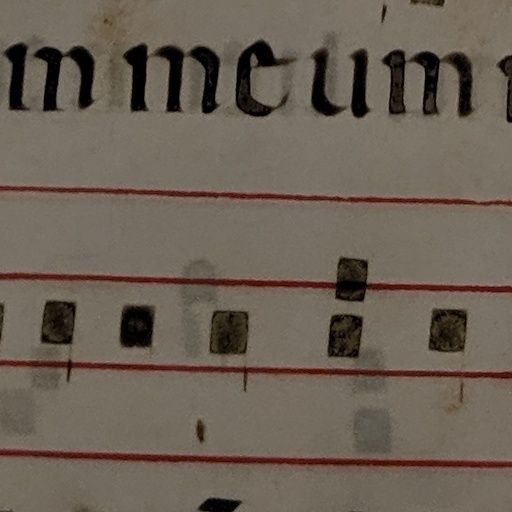 m meum